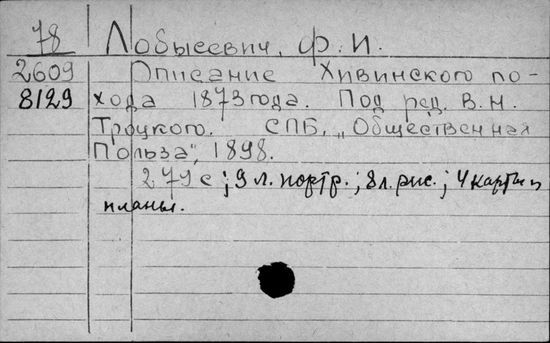 78 Лобысевич, Ф. И.
2609 Описание Хивинского по-
8129 хода 1873 года. Под ред. В. Н.
Троцкого. СПБ, „Общественная
Польза", 1898.
279 с; 9 л. портр.; 8 л. рис.; 4 карты и
планы.